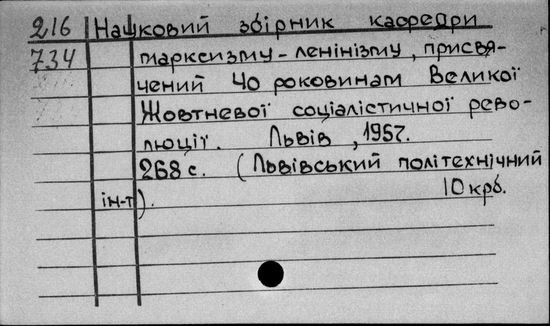 216 Науковий збірник кафедри
734 марксизму-ленінізму, присвя-
чений 40 роковинам Великої
Жовтневої соціалістичної рево-
люції. Львів, 1957.
268 с. (Львівський політехнічний
ін-т). 10 крб.